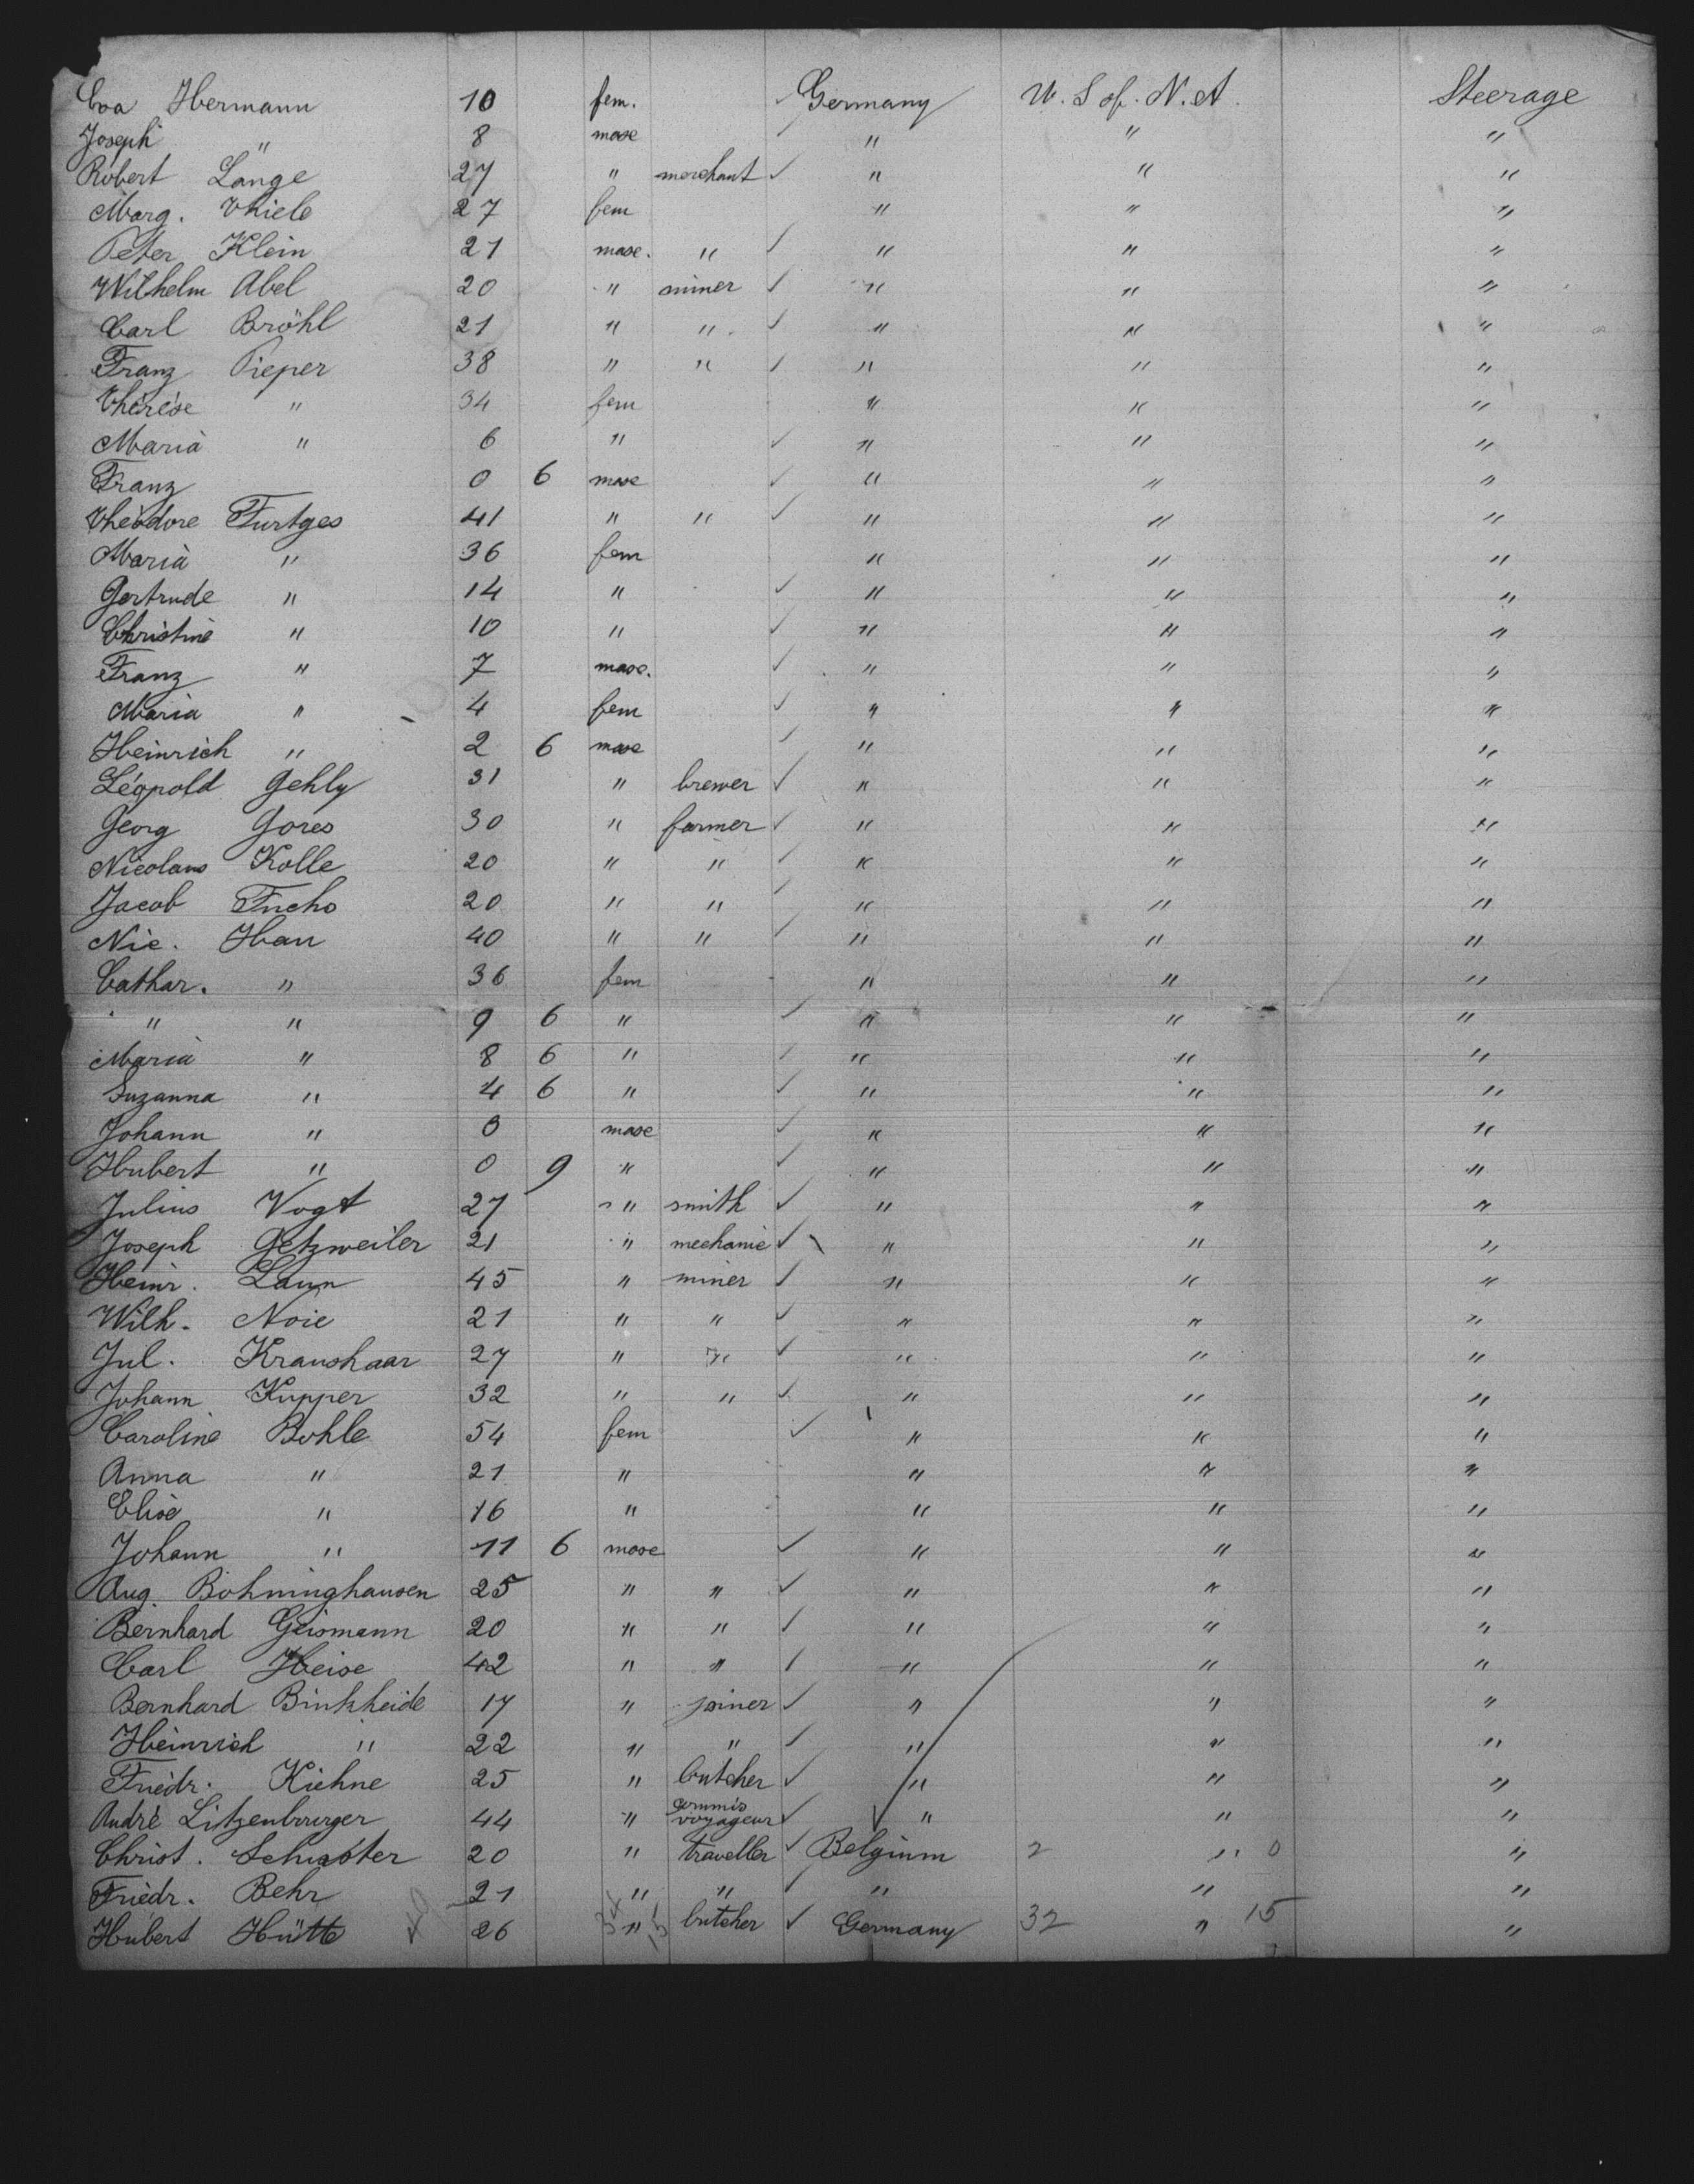 Eva Hermann 10 fem. ✓ Germany U. S of. N. A. Steerage
Joseph " 8 masc ✓ " " "
Robert Lange 27 " merchant ✓ " " "
Marg. Thiele 27 fem " " "
Peter Klein 21 masc. " ✓ " " "
Wilhelm Abel 20 " miner ✓ " " "
Carl Bröhl 21 " " ✓ " " "
Franz Pieper 38 " " ✓ " " "
Thérèse " 34 fem " " "
Maria " 6 " ✓ " " "
Franz 0 6 masc ✓ " " "
Théodore Furtges 41 " " ✓ " " "
Maria " 36 fem " " "
Gertrude " 14 " ✓ " " "
Christine " 10 " ✓ " " "
Franz " 7 masc. ✓ " " "
Maria " 4 fem ✓ " " "
Heinrich " 2 6 masc ✓ " " "
Léopold Gehly 31 " brewer ✓ " " "
Georg Gores 30 " farmer ✓ " " "
Nicolaus Kolle 20 " " ✓ " " "
Jacob Fuchs 20 " " ✓ " " "
Nic. Hau 40 " " ✓ " " "
Cathar. " 36 fem " " "
" " 9 6 " ✓ " " "
Maria " 8 6 " ✓ " " "
Suzanna " 4 6 " ✓ " " "
Johann " masc ✓ " " "
Hubert " 0 9 " ✓ " " "
Julius Vogt 27 " smith ✓ " " "
Joseph Getzweiler 21 " mechanic ✓ " " "
Heinr. Laun 45 " miner ✓ " " "
Wilh. Noie 21 " " ✓ " " "
Jul. Kraushaar 27 " " ✓ " " "
Johann Kupper 32 " " ✓ " " "
Caroline Bohle 54 fem ✓ " " "
Anna " 21 " " " "
Elise " 16 " " " "
Johann " 11 6 masc ✓ " " "
Aug. Böhminghausen 25 " " ✓ " " "
Bernhard Geismann 20 " " ✓ " " "
Carl Heise 42 " " ✓ " " "
Bernhard Binkheide 17 " joiner ✓ " " "
Heinrich " 22 " " ✓ " " "
Friedr. Kiehne 25 " butcher ✓ " " "
André Litzenburger 44 " commis voyageur ✓ " " "
Christ. Schuster 20 " traveller ✓ Belgium 2 " 0 "
Friedr. Behr 21 " " ✓ " " "
Hubert Hütte 26 " butcher ✓ Germany 32 " 15 "